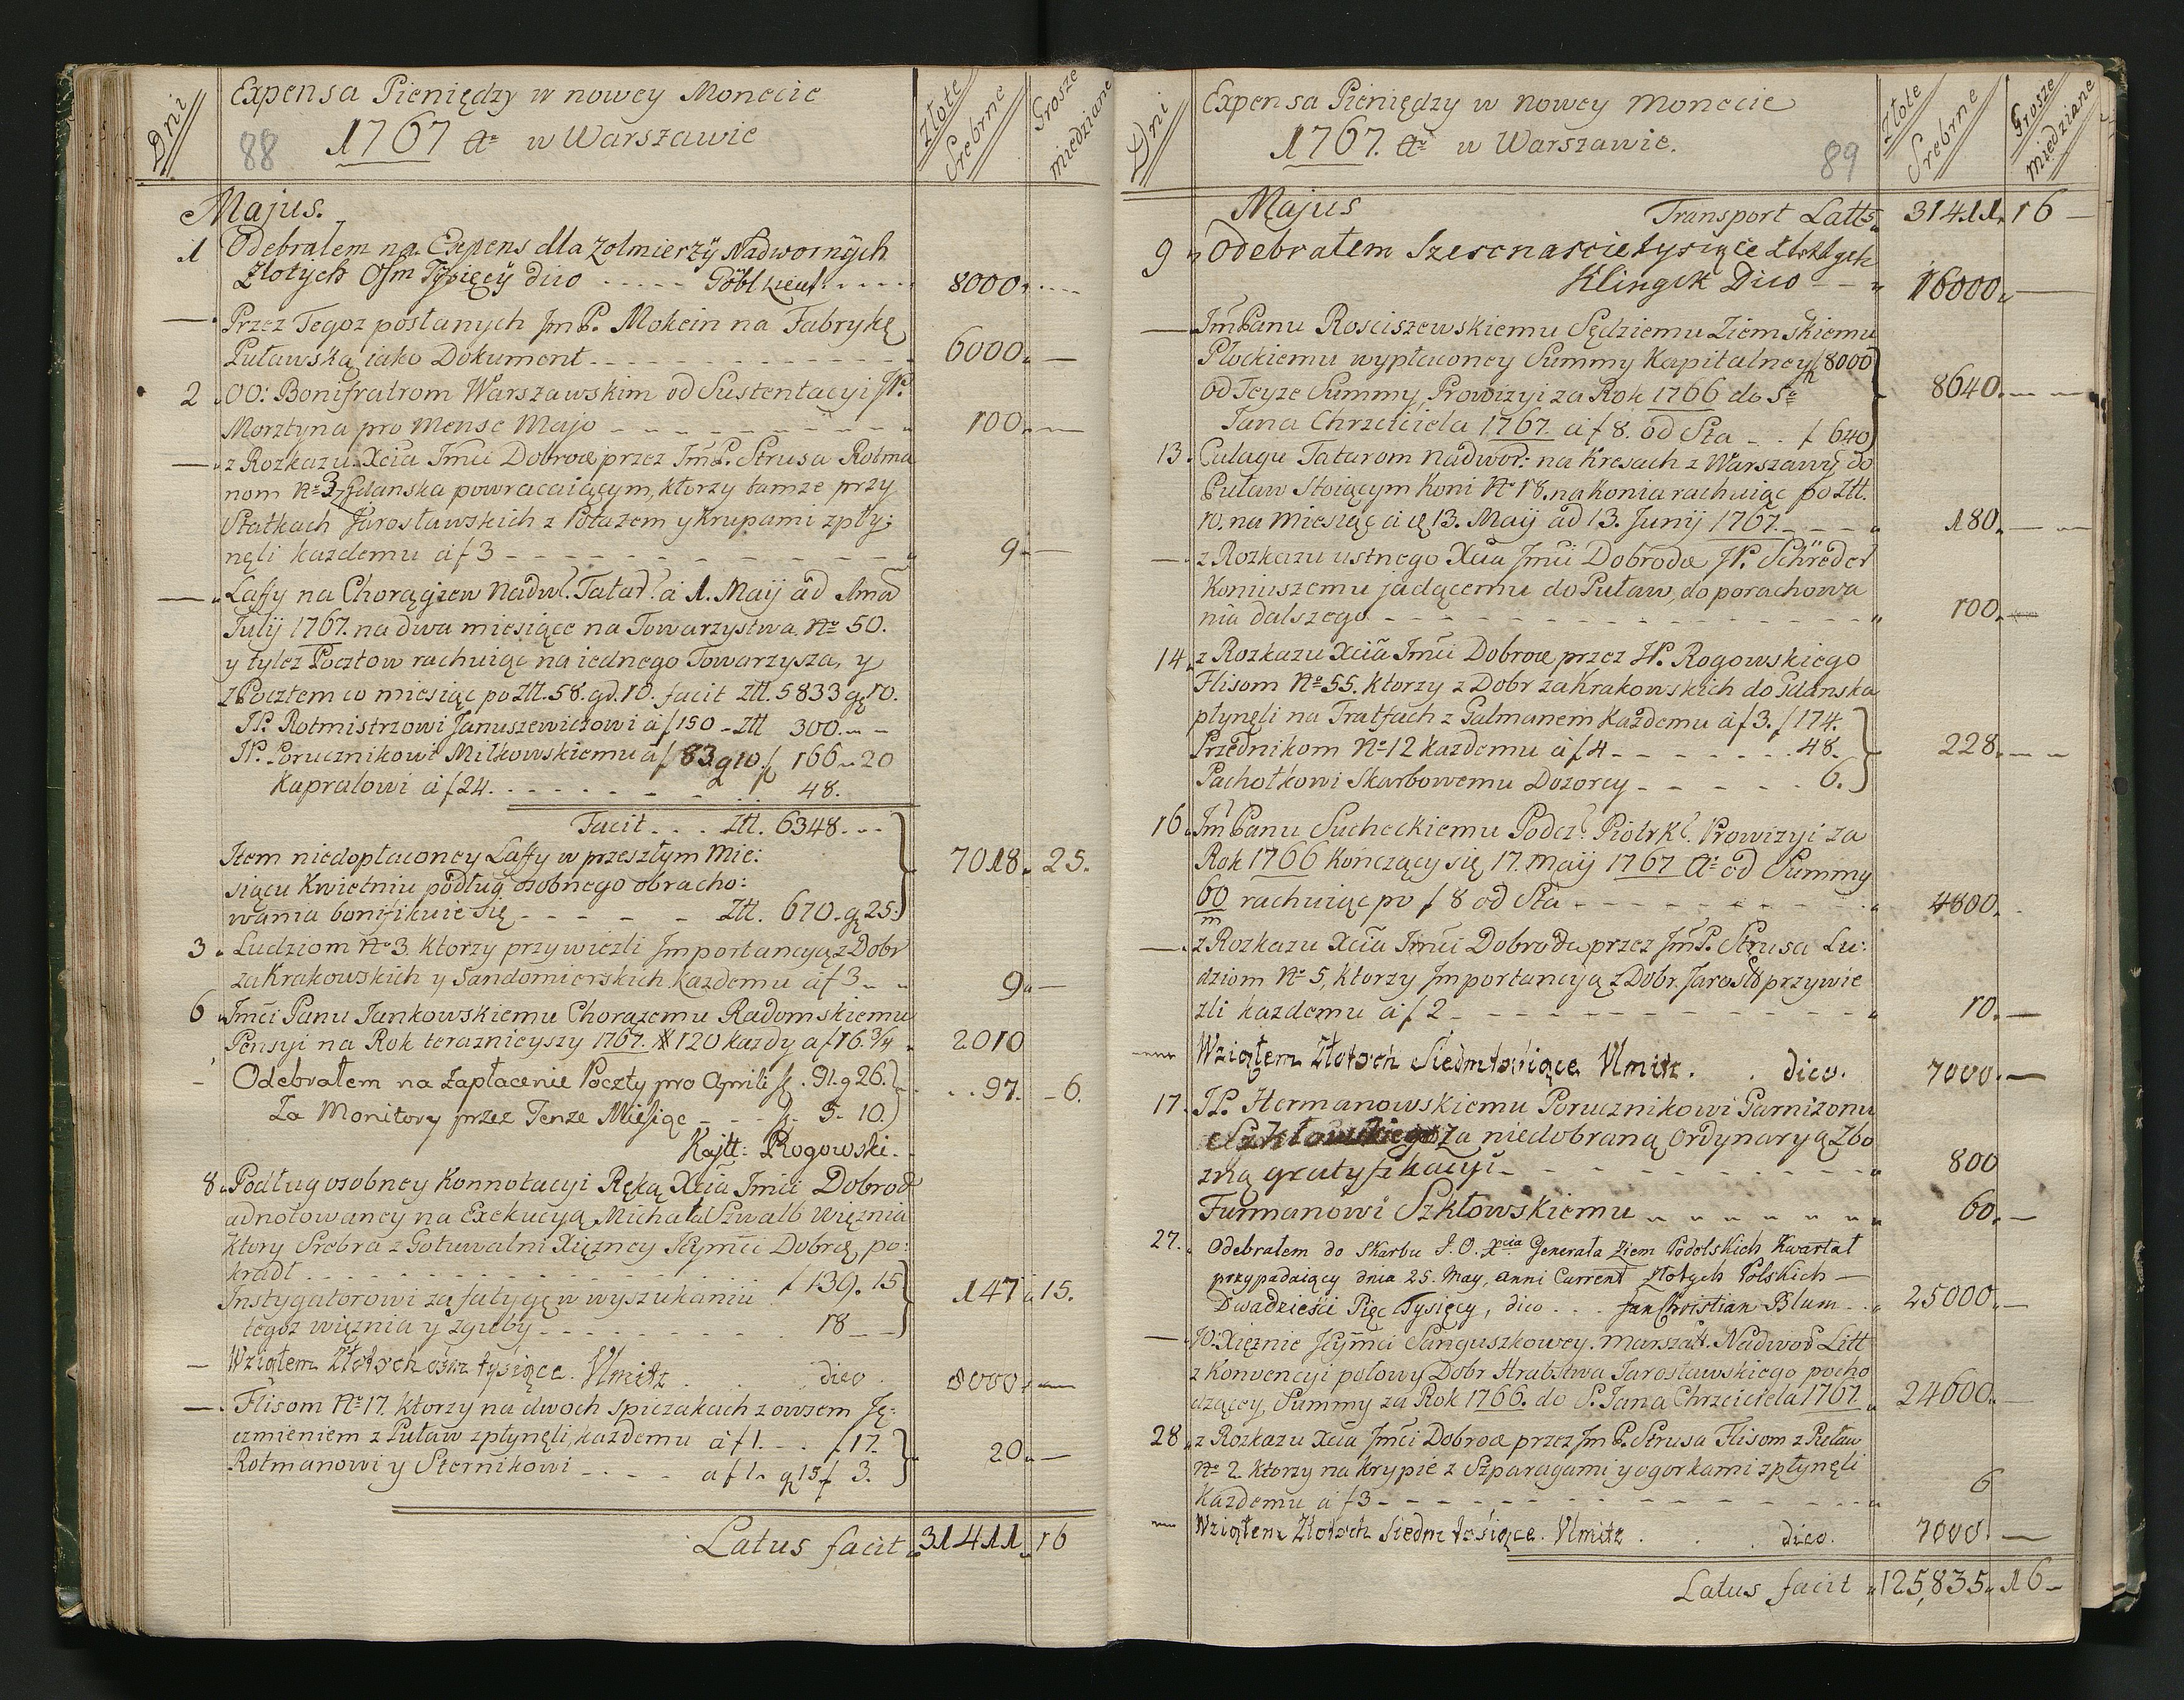 Dni
Expensa Pieniędzy w nowey Monecie
88 1767 Ao w Warszawie
Złote Srebrne
Grosze miedziane
Majus.
1 Odebrałem na Expens dla Zolmierzÿ Nadwornÿch
Złotÿch Osm Tysięcÿ dico ..... 8000 ....
— Przez Tegoz posłanych JmP. Mokein na Fabrykę
Puławską iako Dokument - - - 6000 —
2 OO: Bonifratrom Warszawskim od Sustentacyi JP.
Morztyna pro Mense Majo - - - 100 —
— z Rozkazu Xcia Jmci Dobrod przez JmP. Strusa Rotma
nom No 3, z Gdanska powracaiącym, ktorzy tamze przy
Statkach Jarosławskich z Potazem y Krupami zpłÿ:
nęli kazdemu á f 3 - - - 9 —
— Laffy na Chorągiew Nadwl. Tatar. a 1. Maÿ ad 1ma
Julÿ 1767. na dwa miesiące na Towarzystwa No 50.
y tylez Pocztow rachuiąc na iednego Towarzysza, y
z Pocztem co miesiąc po Ztt. 58. gd. 10. facit Ztt. 5833 g. 10.
JP. Rotmistrzowi Januszewiczowi á f 150 - Ztt 300. - -
JP. Porucznikowi Milkowskiemu á f 83. g 10. f 166 .. 20
Kapralowi á f 24. - - - 48.
Facit - - - Ztt. 6348 - -
Item niedopłaconey Laffy w przeszłym Mie:
siącu Kwietniu podług osobnego obracho: 7018. 25.
wania bonifikuie się - - - Ztt. 670. g 25.
3 Ludziom No 3. ktorzy przywiezli Importancyą z Dobr
zakrakowskich y Sandomierskich kazdemu á f 3 - - 9 —
6 Jmci Panu Jankowskiemu Chorązemu Radomskiemu
Pensyi na Rok teraznieyszy 1767. # 120 kazdy a f 16. 3/4 2010
— Odebrałem na Zapłacenie Poczty pro Aprili f. 91. g 26. .. 97. - 6.
Za Monitory przez Tenze Miesiąc - - f. 5. 10.
Kajtt: Rogowski.
8 Podług osobney Konnotacyi Ręką Xcia Jmci Dobrod
adnotowaney na Exekucyą Michała Szwalb więznia
ktory Srebra z Gotuwalni Xięzney Jeymci Dobrą, po:
kradł - - - f 139. 15
Instygatorowi za fatygę w wyszukaniu 147 15.
tegoz więznia y zguby - - - 18 - -
— Wziąłem Złotych osm tysięce. Vlmitz . dico . 8000 —
— Flisom No 17. ktorzy na dwoch spiczakach z owsem Ję:
czmieniem z Puław zpłynęli, kazdemu á f 1. - - f 17. 20 —
Rotmanowi y Sternikowi - - - a f 1. g 15 f 3.
Latus facit 31411 16
Dni
Expensa Pieniędzy w nowey Monecie
1767. Ao w Warszawie. 89
Złote Srebrne
Grosze miedziane
Majus Transport Latts. 31411. 16 —
9 Odebrałem Szesnascie tysiące Złotych
Klingek Dico - - 16000 —
— JmPanu Rosciszewskiemu Sędziemu Ziemskiemu
Płockiemu wypłaconey Summy Kapitalney f 8000
od Teyze Summy, Prowizyi za Rok 1766 do So 8640. — —
Jana Chrzciciela 1767. á f 8. od Sta - . f 640
13. Culagu Tatarom Nadwor: na Kresach z Warszawy do
Puław Stoiącym Koni No 18. na Konia rachuiąc po Ztt.
10. na miesiąc á d 13. Maÿ ad 13. Junÿ 1767. - - - 180. — —
— z Rozkazu ustnego Xcia Jmci Dobrodz JP. Schrëder
Koniuszemu jadącemu do Puław, do porachowa
nia dalszego - - - 100.
14 z Rozkazu Xcia Jmci Dobrod przez JP. Rogowskiego
Flisom No 55. ktorzy z Dobr zakrakowskich do Gdanska
płynęli na Tratfach z Galmanem Kazdemu á f 3. f 174.
Przednikom No 12 kazdemu á f 4 - - - 48. 228. — —
Pachołkowi Skarbowemu Dozorcy - - - 6.
16 JmPanu Sucheckiemu Podcz. Piotrkl. Prowizyi za
Rok 1766 Kończący się 17. Maÿ 1767 Ao od Summy
60/m rachuiąc po f 8 od Sta - - - 4800.
— z Rozkazu Xcia Jmci Dobrodz przez JmP. Strusa Lu:
dziom No 5, ktorzy Importancyą z Dobr. Jarosło przywie
zli kazdemu á f 2 - - - 10. —
— Wziąłem Złotych Siedm tysiące Vlmitz . . dico. 7000. —
17. JP. Hermanowskiemu Porucznikowi Garnizonu
Szkłowskiego za niedobraną Ordynaryą Zbo
zną gratyfikacyi - - - 800
Furmanowi Szkłowskiemu - - - 60. —
27. Odebrałem do Skarbu J. O. Xcia Generała Ziem Podolskich Kwartał
przypadaiący dnia 25. May, anni Current Złotych Polskich —
Dwadzieści Pięć Tysięcy, dico . . . Jan Christian Blum . . 25000 —
— JO. Xięznie Jeymci Sanguszkowey. Marszałt. Nadwor Litt
z Konvencyi połowy Dobr Hrabstwa Jarosławskiego pocho
dzącey, Summy za Rok 1766. do S. Jana Chrzciciela 1767. 24000. —
28 z Rozkazu Xcia Jmci Dobrod przez JmP. Strusa Flisom z Puław
No 2. ktorzy na krypie z Szparagami y ogorkami zpłynęli
Kazdemu á f 3 - - - 6
— Wziąłem Złotych Siedm tysiące. Vlmitz . . . dico. 7000. —
Latus facit 125,835. 16 —